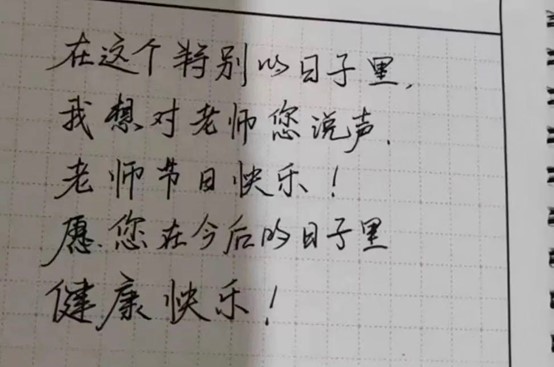 在这个特别的日子里,
我想对老师您说声.
老师节日快乐!
愿.您在今后的日子里
健康快乐!